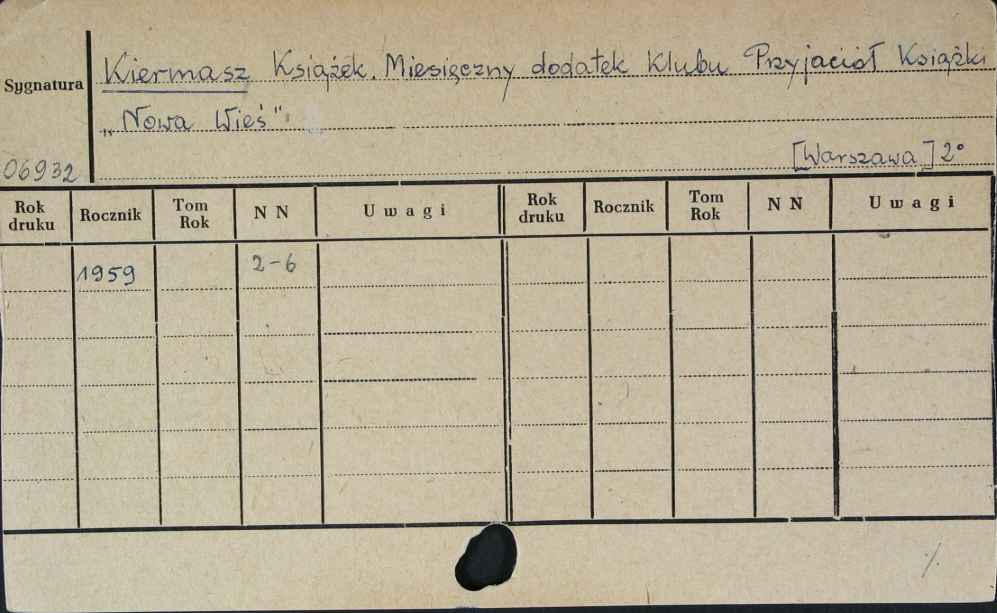 Sygnatura
Kiermasz Książek. Miesięczny dodatek Klubu Przyjaciół Książki
„Nowa Wieś"
06932
[Warszawa] 2°
Rok druku Rocznik Tom Rok N N Uwagi Rok druku Rocznik Tom Rok N N Uwagi
1959 2-6